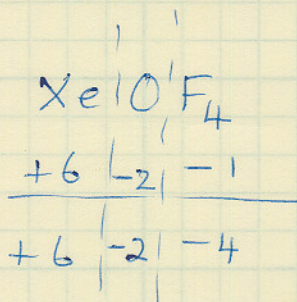 Xe O F₄
+6 -2 -1
+6 -2 -4